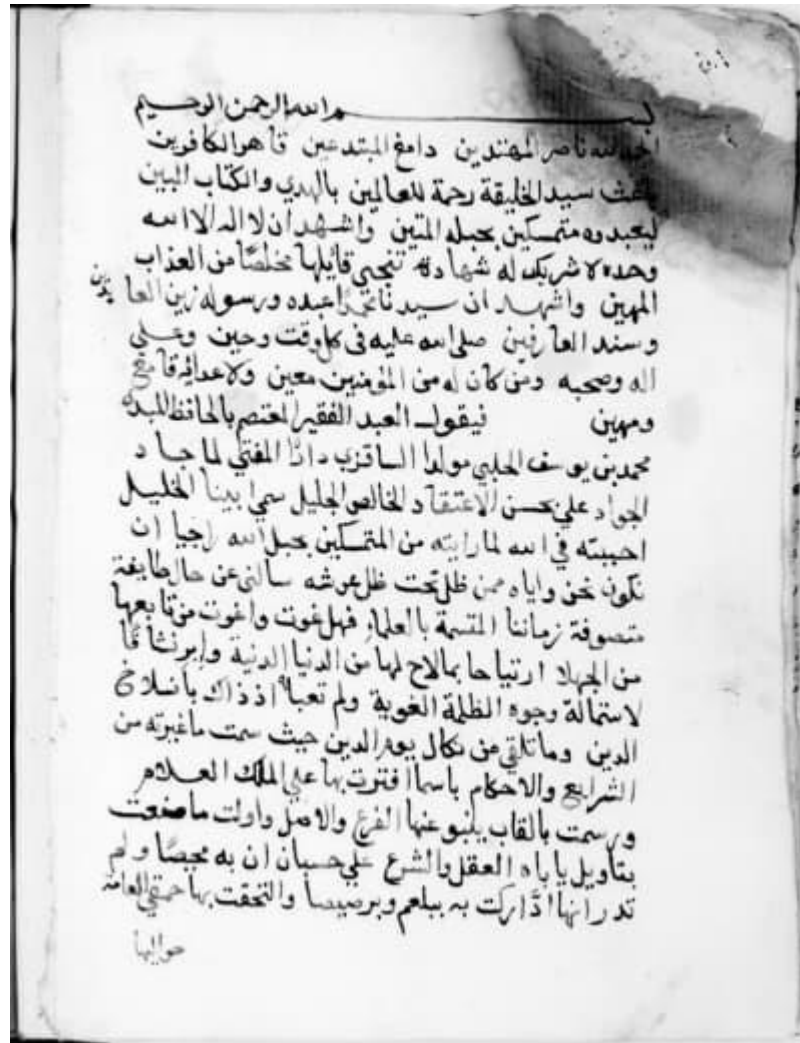 بسم الله الرحمن الرحيم
الحمد لله ناصر المهتدين دامغ المبتدعين قاهر الكافرين
باعث سيد الخليقة رحمة للعالمين بالهدي والكتاب المبين
ليعبدوه متمسكين بحبله المتين واشهد ان لا اله الا الله
وحده لا شريك له شهادة تنجي قايلها مخلصًا من العذاب
المهين واشهد ان سيدنا محمدا عبده ورسوله زين العا
بدين
وسند العارفين صلى الله عليه في كل وقت وحين وعلي
اله وصحبه ومن كان له من المؤمنين معين ولاعدائه قامع
ومهين فيقول العبد الفقير المعتصم بالحافظ المبدء
محمد بن يوسف الحلبي مولدا الساقزي دارًا المفتي لما جاد
الجواد علي بحسن الاعتقاد الخالص الجليل سمي ابينا الخليل
احببته في الله لما رايته من المتمسكين بحبل الله راجيا ان
نكون نحن واياه ممن ظل تحت ظل عرشه سالني عن حال طايفة
متصوفة زماننا المتسمة بالعلماء فهل غوت واغوت من تابعها
من الجهلا ارتياحا بمالاح لها من الدنيا الدنية وابرنشاقا
لاستمالة وجوه الظلمة الغوية ولم تعبا اذ ذاك بانسلاخ
الدين وما تلقي من نكال يوم الدين حيث سمت ما غيرته من
الشرايع والاحكام باسما افترت بها علي الملك العلام
ورسمت بالقاب ينبو عنها الفرع والاصل واولت ما صنعت
بتاويل ياباه العقل والشرع علي حسبان ان به محيصًا ولم
تدر انها ادّاركت به ببلعم وبرصيصا والتحقت بها حمقي العامة
حواليها